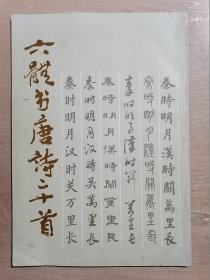 六體书唐詩二十首
秦時明月漢時關萬里長
秦時明月漢時關萬里長
秦时明月漢时關萬里長
秦時明月漢時關萬里長
秦时明月漢時关萬里長
秦时明月汉时关万里长